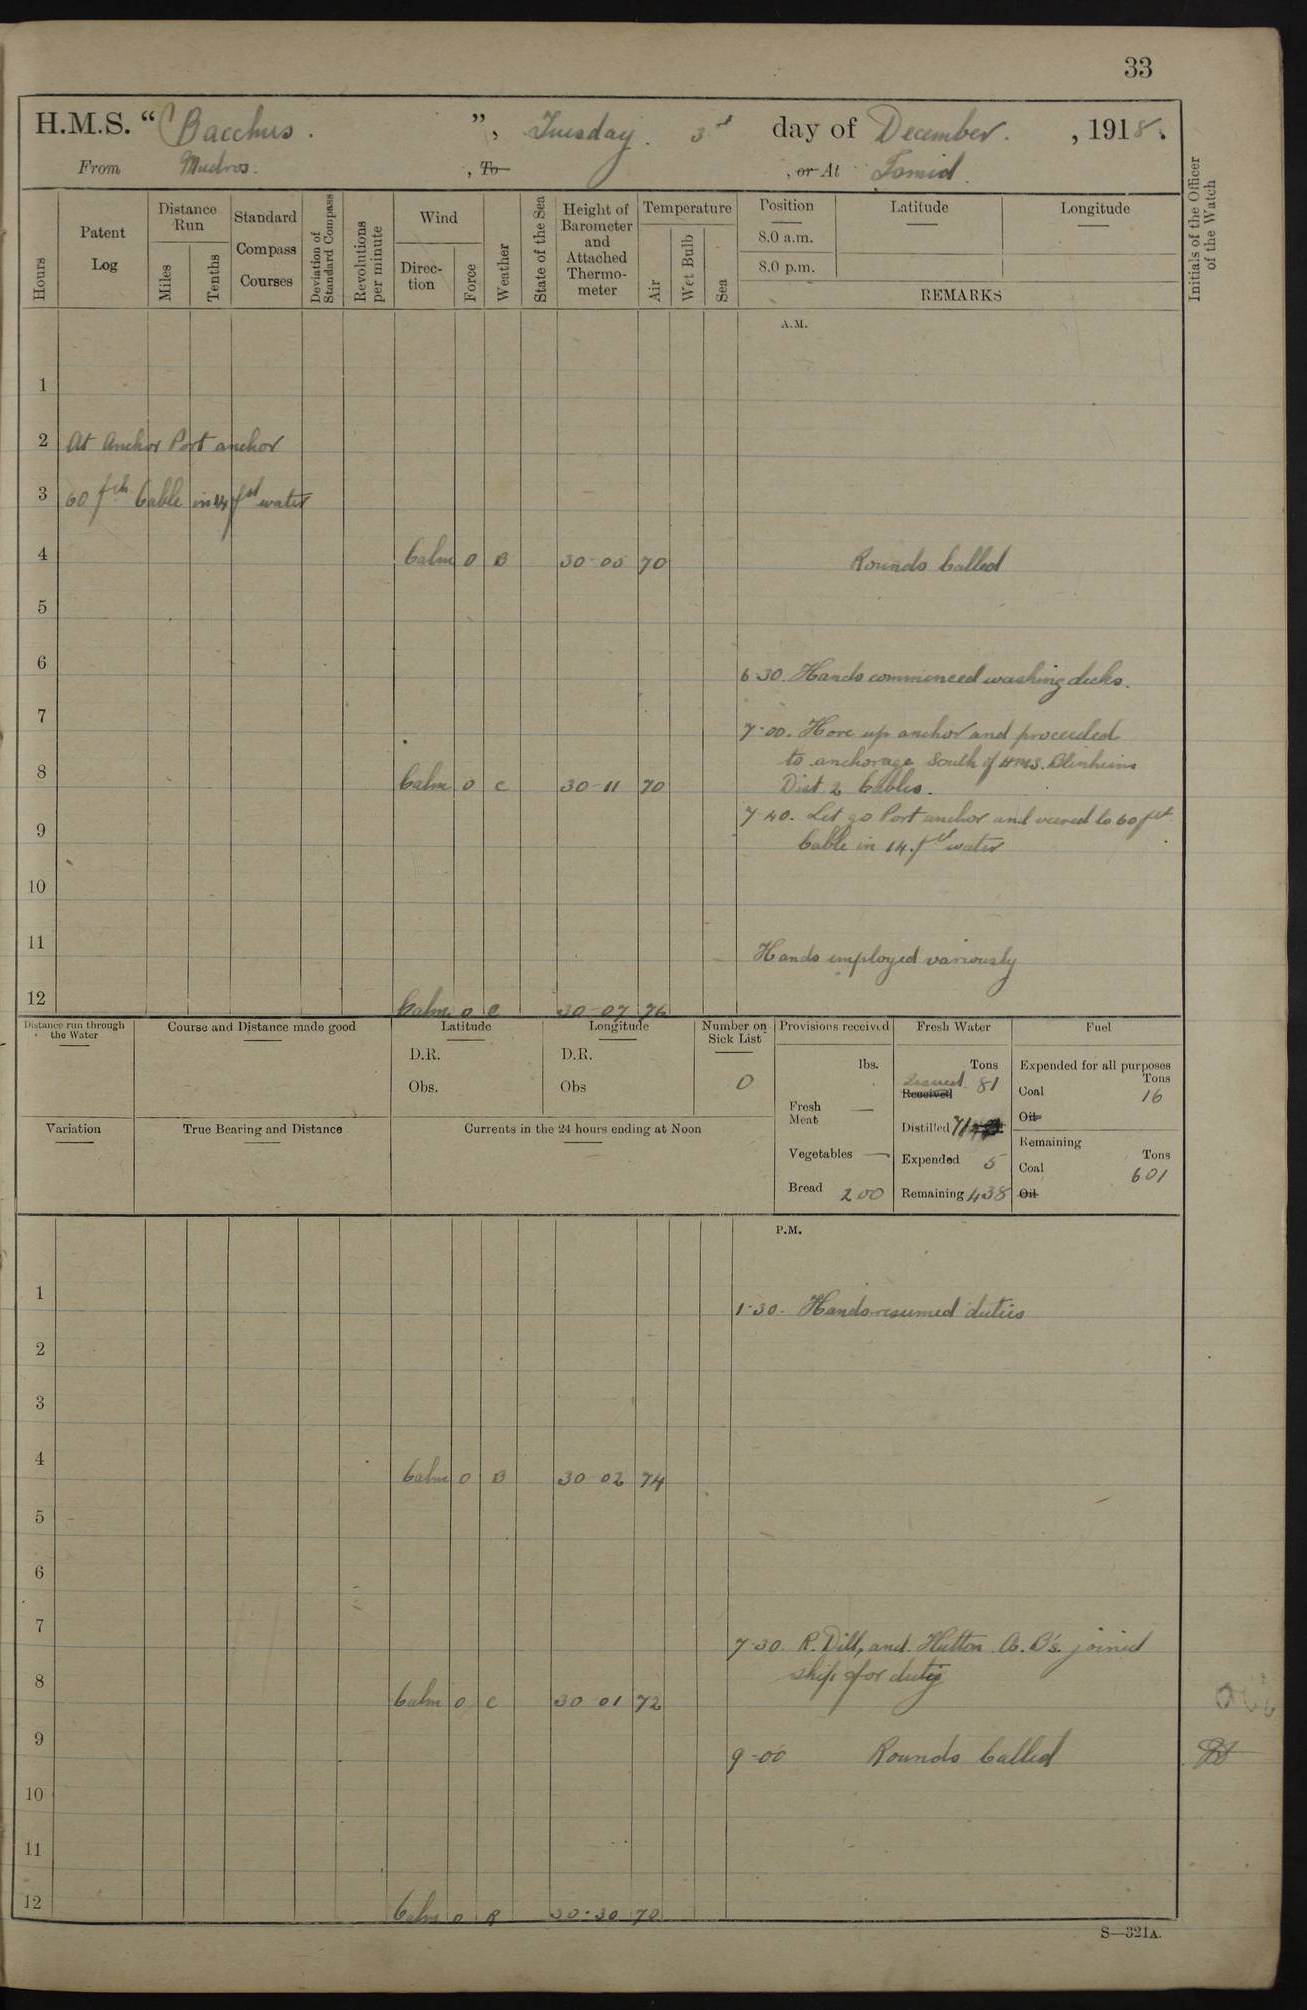 33
H.M.S. “ Bacchus. ”, Tuesday. 3rd day of December. , 1918.
From Mudros. , To , or At Ismid.
Hours
Patent Log
Distance Run
Miles
Tenths
Standard Compass Courses
Deviation of Standard Compass
Revolutions per minute
Wind
Direction
Force
Weather
State of the Sea
Height of Barometer and Attached Thermometer
Temperature
Air
Wet Bulb
Sea
Position
8.0 a.m.
8.0 p.m.
Latitude
Longitude
REMARKS
Initials of the Officer of the Watch
A.M.
1
2 At Anchor Port anchor
3 60 fth Cable in 14 fth water
4 Calm 0 B 30-05 70 Rounds Called
5
6 6-30. Hands commenced washing decks.
7 7-00. Hove up anchor and proceeded
to anchorage South of HMS. Blenheim
8 Calm 0 C 30-11 70 Dist 2 Cables.
7-40. Let go Port anchor and veered to 60 fth
9 Cable in 14. fth water
10
11 Hands employed variously
12 Calm 0 C 30-07 76
Distance run through the Water
Course and Distance made good
Latitude
D.R.
Obs.
Longitude
D.R.
Obs
Number on Sick List
0
Provisions received
lbs.
Fresh Meat —
Vegetables —
Bread 200
Fresh Water
Tons
Issued 81
Received
Distilled 71
Expended 5
Remaining 438
Fuel
Expended for all purposes
Tons
Coal 16
Oil
Remaining
Tons
Coal 601
Oil
Variation
True Bearing and Distance
Currents in the 24 hours ending at Noon
P.M.
1 1-30. Hands resumed duties
2
3
4 Calm 0 B 30 02 74
5
6
7 7-30 R. Dill, and Hutton A.B's. joined
ship for duty
8 Calm 0 C 30 01 72
9 9-00 Rounds Called
10
11
12 Calm 0 B 30-30 70
S—321A.